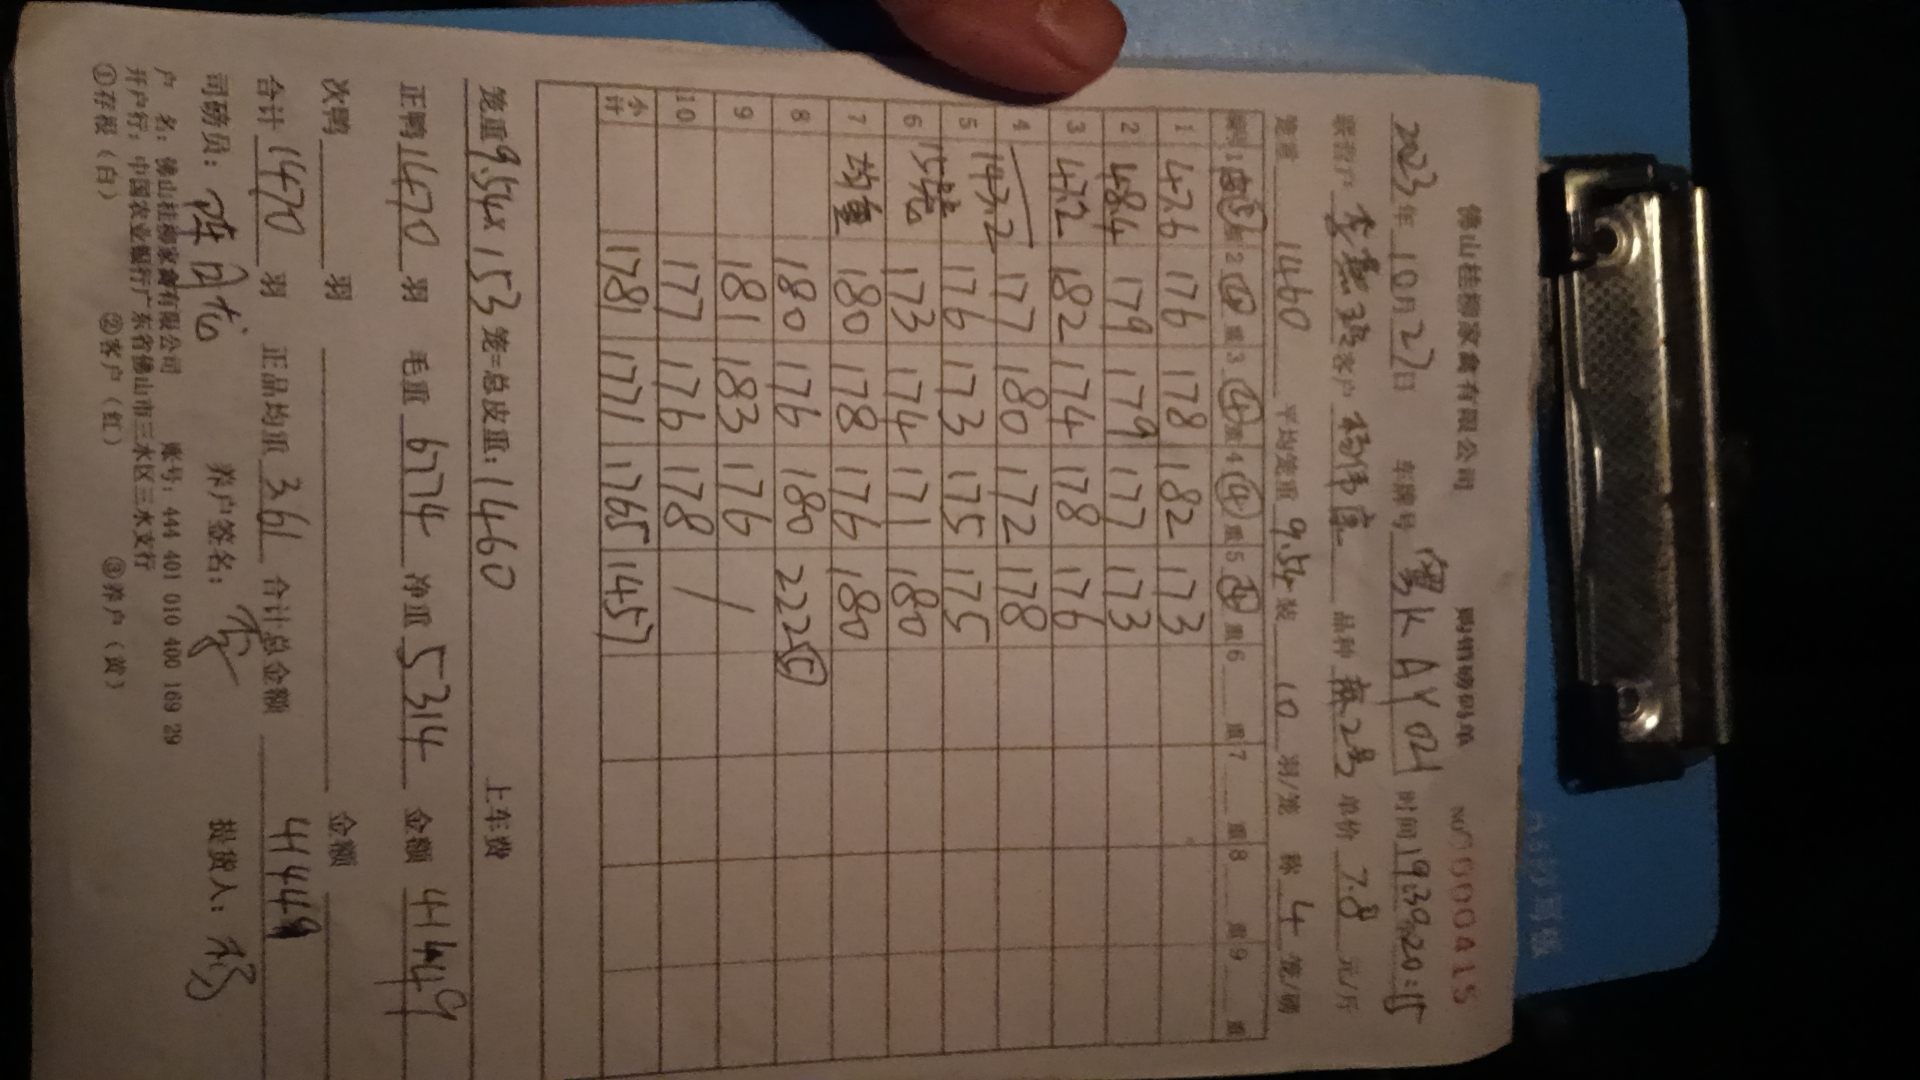 佛山桂柳家禽有限公司 购销磅码单 NO 0000415
2023年10月27日 车牌号 粤KAY021 时间 19:39 20:15
客户 品种 麻2号 单价 7.8 元/斤
笼重 1460 平均笼重 9.54 装 10 羽/笼 称 4 笼/磅
1 重2 ④ 重3 ④ 重4 ④ 重5 ④ 重6 重7 重8 重9 重
1 476 176 178 182 173
2 484 179 179 177 173
3 472 182 174 178 176
4 177 180 172 178
5 1432 176 173 175 175
6 153笼 173 174 171 180
7 均重 180 178 176 180
8 180 176 180 222⑤
9 181 183 176
10 177 176 178 /
小计 1781 1771 1765 1457
笼重 9.54 x 153 笼=总皮重: 1460 上车费
正鸭 1470 羽 毛重 6774 净重 5314 金额 41449
次鸭 羽 金额
合计 1470 羽 正品均重 3.61 合计总金额 41449
司磅员: 养户签名: 提货人: 杨
户 名: 佛山桂柳家禽有限公司 账号: 444 401 010 400 169 29
开户行: 中国农业银行广东省佛山市三水区三水支行
①存根（白） ②客户（红） ③养户（黄）